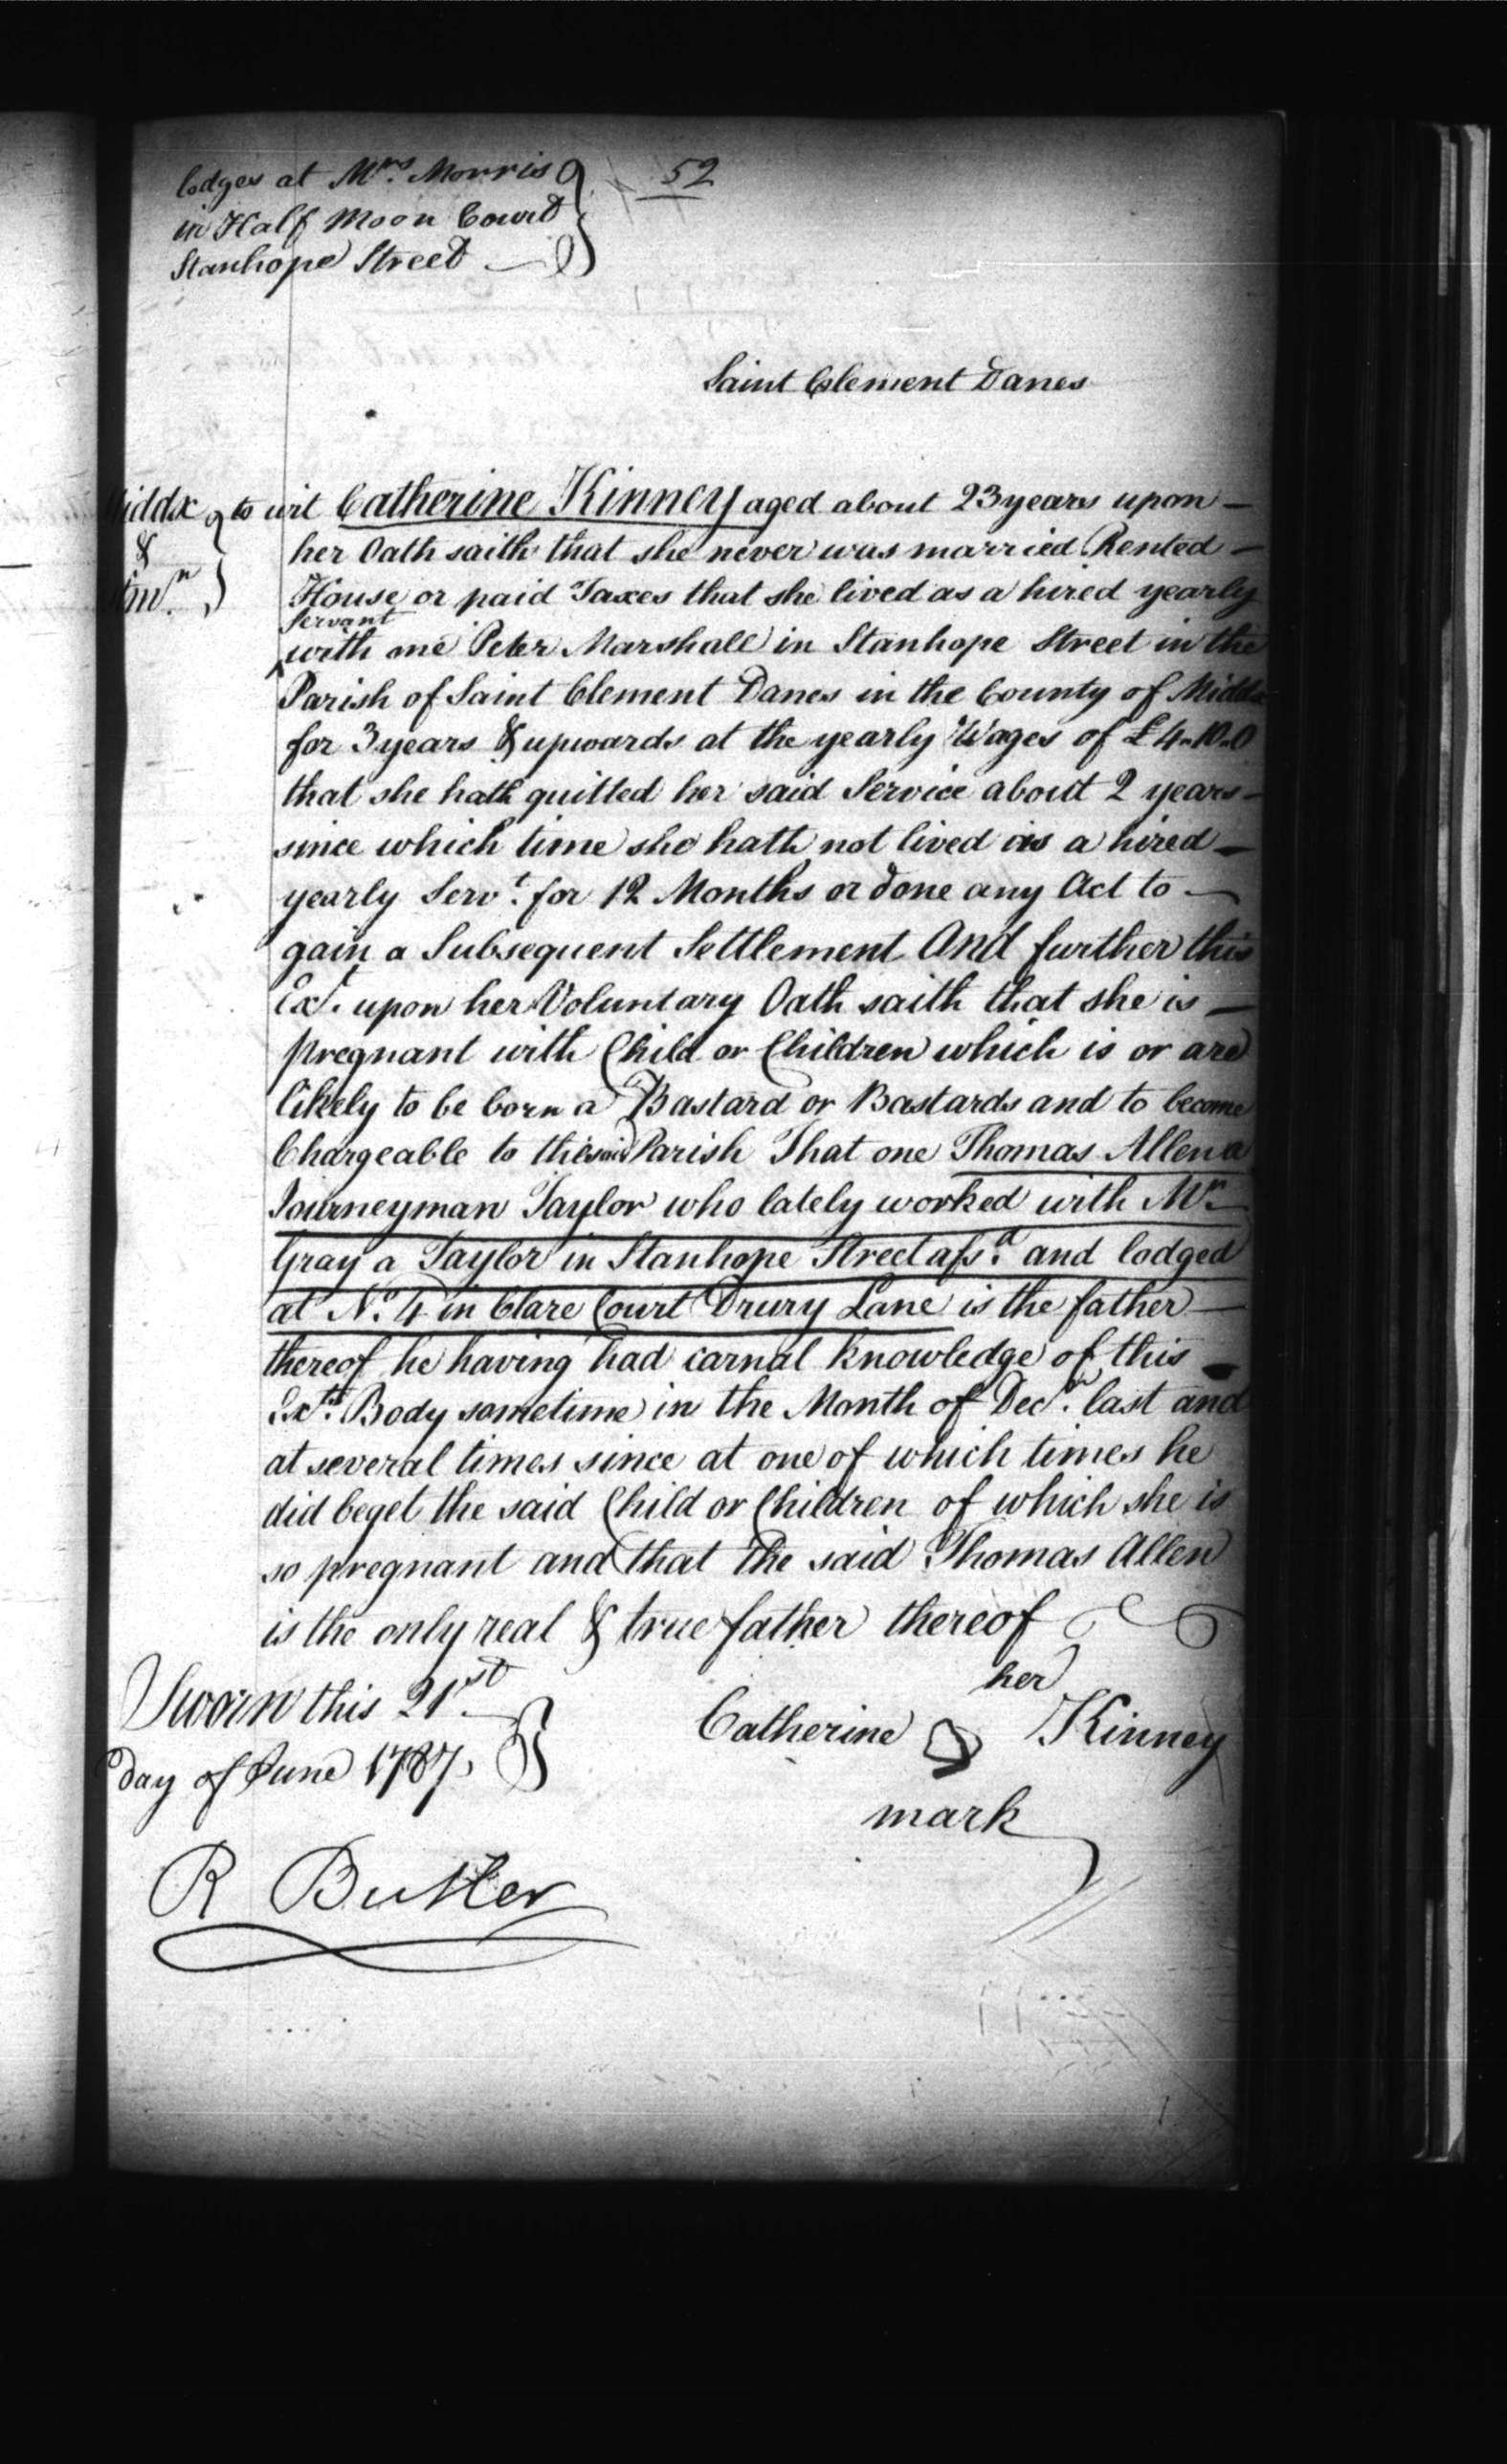 lodges at Mrs. Morris
in Half Moon Court
Stanhope Street
52
Saint Clement Danes
Middx to wit Catherine Kinney aged about 23 years upon
&
her Oath saith that she never was married Rented
House or paid Taxes that she lived as a hired yearly
servant
with one Peter Marshall in Stanhope Street in the
Parish of Saint Clement Danes in the County of Middx
for 3 years & upwards at the yearly Wages of £4.10.0
that she hath quitted her said Service about 2 years
since which time she hath not lived as a hired
yearly Servt. for 12 Months or done any Act to
gain a Subsequent Settlement And further this
Ext. upon her Voluntary Oath saith that she is
pregnant with Child or Children which is or are
likely to be born a Bastard or Bastards and to become
Chargeable to the said Parish That one Thomas Allen a
Journeyman Taylor who lately worked with Mr.
Gray a Taylor in Stanhope Street afsd. and lodged
at No. 4 in Clare Court Drury Lane is the father
thereof he having had carnal knowledge of this
Exts. Body sometime in the Month of Decr. last and
at several times since at one of which times he
did beget the said Child or Children of which she is
so pregnant and that the said Thomas Allen
is the only real & true father thereof
Sworn this 21st
day of June 1787
her
Catherine Kinney
mark
R Butler